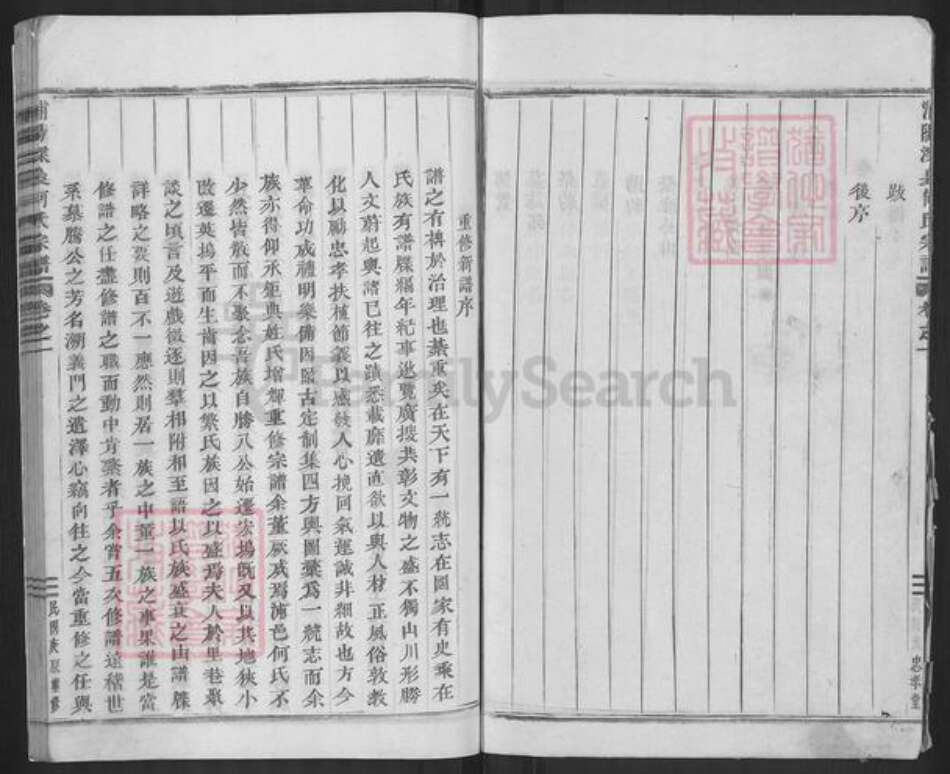 跋
後序
忠孝堂
重修新譜序
譜之有禆於治理也綦重矣在天下有一統志在國家有史乘在
氏族有譜牒編年紀事遐覽廣搜共彰文物之盛不獨山川形勝
人文蔚起與諸已往之蹟悉載靡遺直欲以興人材正風俗敦教
化以勵忠孝扶植節義以感發人心挽回氣運誠非細故也方今
革命功成禮明樂備因而古定制集四方輿圖彙爲一統志而余
族亦得仰承鉅典姓氏增輝重修宗譜余董厥成焉浦邑何氏不
少然皆散而不聚念吾族自勝八公始遷宏塢既又以其地狹小
改遷英塢平而生齒因之以繁氏族因之以盛焉夫人於里巷聚
談之頃言及遊戲徵逐則羣相附和至語以氏族盛衰之由譜牒
詳畧之從則百不一應然則居一族之中董一族之事果誰是當
修譜之任盡修譜之職而動中肯綮者乎余嘗五次修譜遠稽世
系慕騰公之芳名溯義門之遺澤心竊向往之今當重修之任與
何氏宗譜 卷之一
民國
重修
FamilySearch